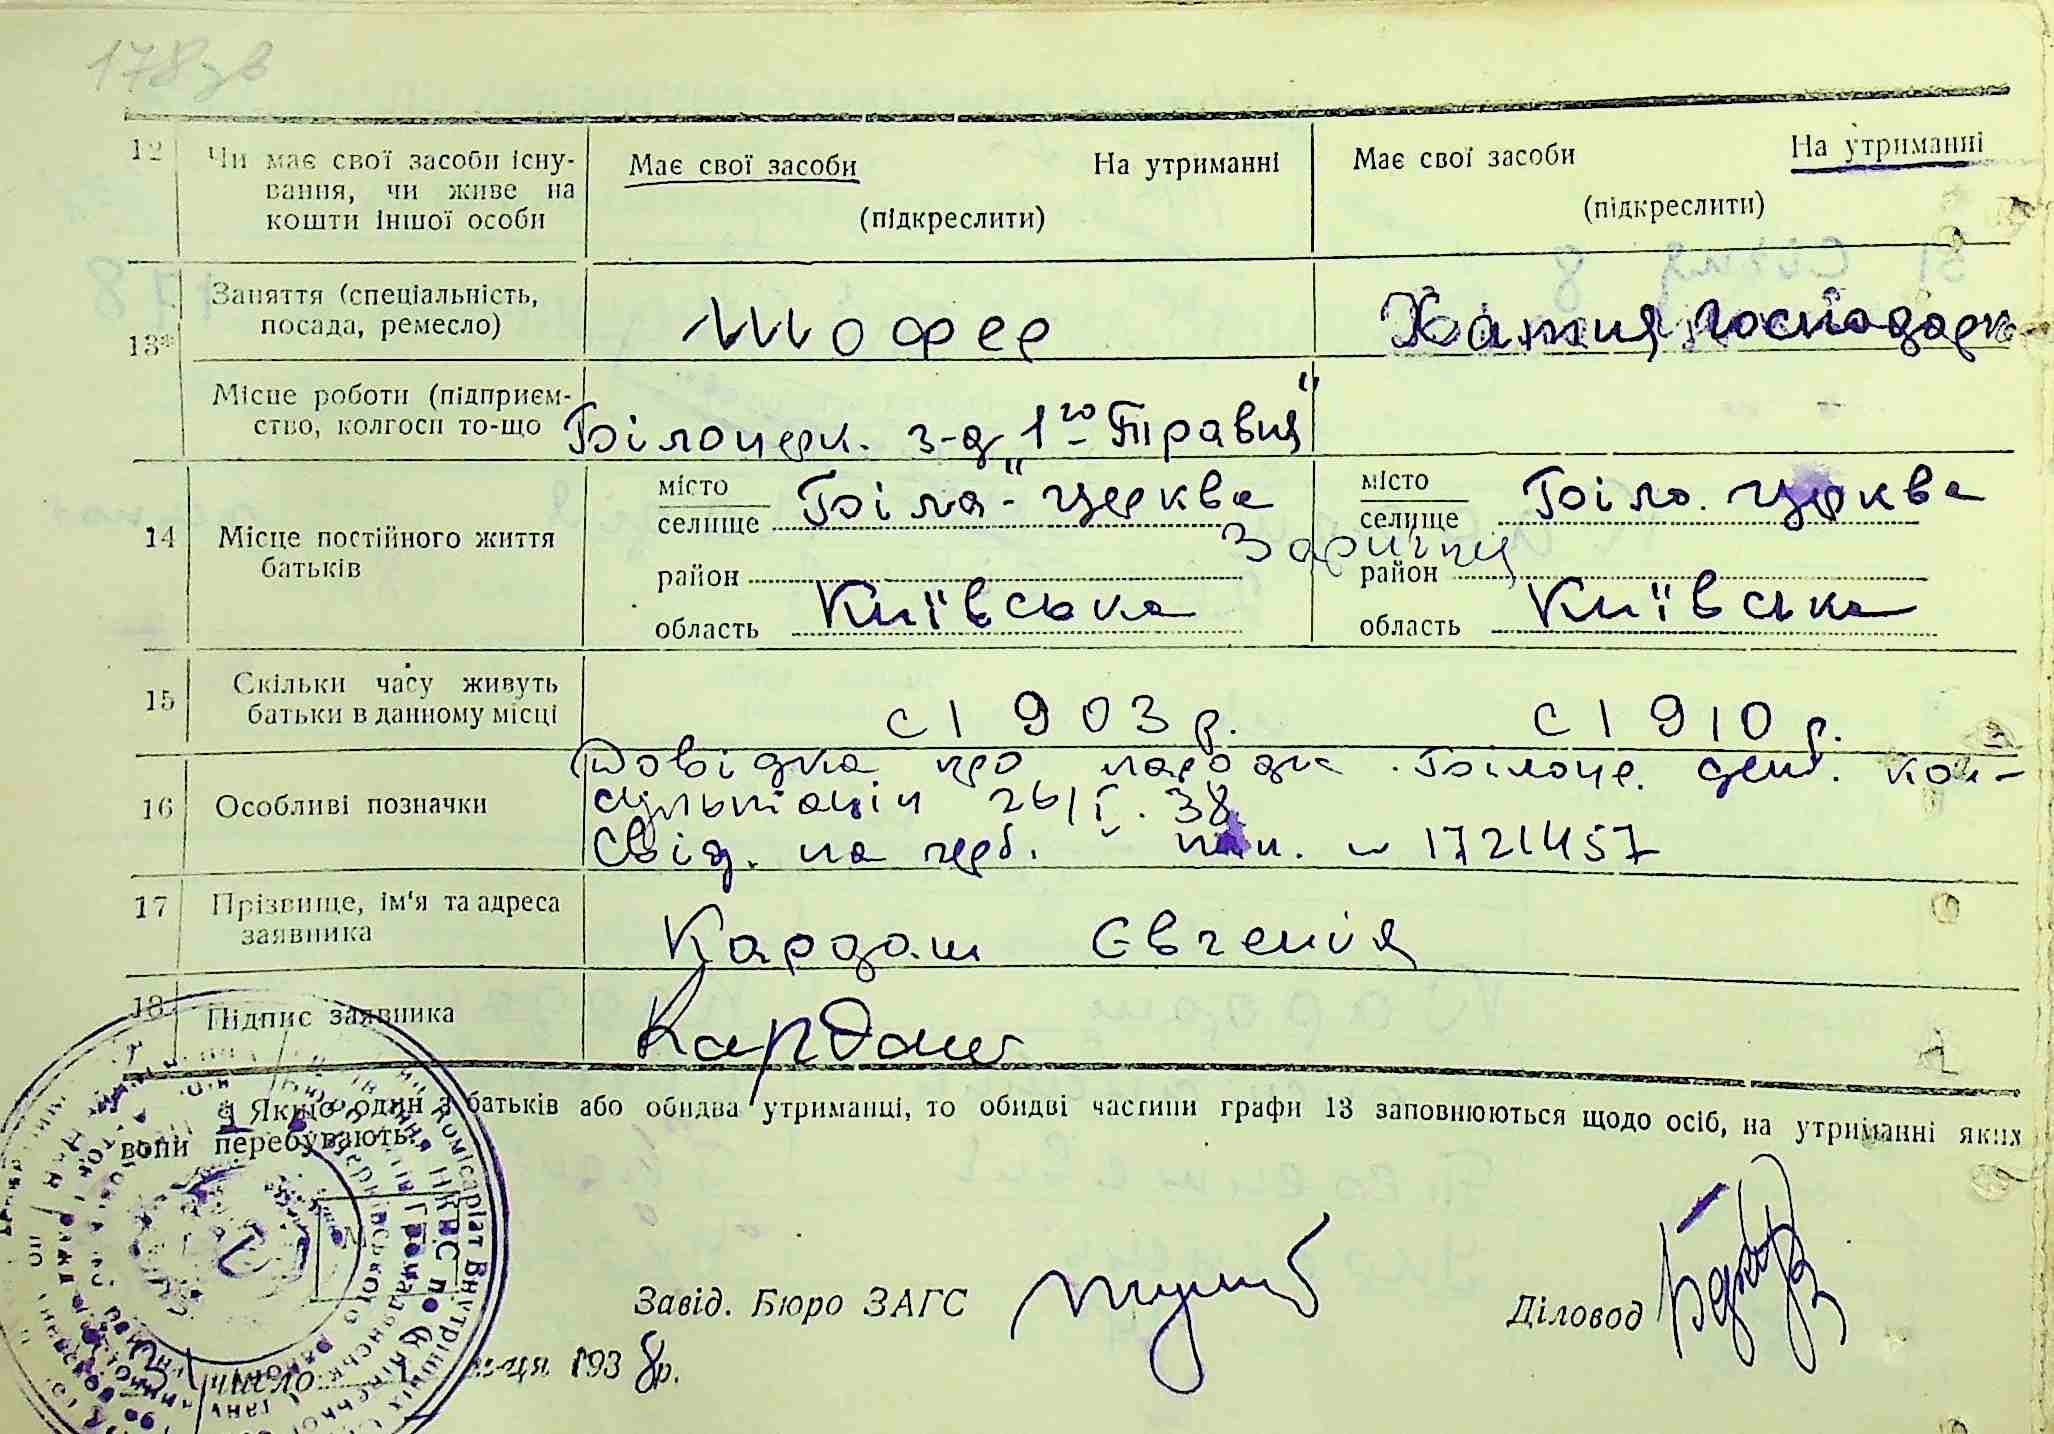 178зв
12 Чи має свої засоби існу-
вання, чи живе на
кошти іншої особи
Має свої засоби На утриманні
(підкреслити)
Має свої засоби На утриманні
(підкреслити)
13* Заняття (спеціальність,
посада, ремесло)
Шофер
Хатня господарк
Місце роботи (підприєм-
ство, колгосп то-що
Білоцерк. з-д "1го Травня"
14 Місце постійного життя
батьків
місто
селище Біла-церква
район Зарічч
область Київська
місто
селище Біло. церква
район
область Київська
15 Скільки часу живуть
батьки в данному місці
с 1903 р. с 1910 р.
16 Особливі позначки
Довідка про народж. Білоце. кон-
сультації 26/I. 38
Свід. на герб. пап. № 1721457
17 Прізвище, ім'я та адреса
заявника
Кардаш Євгенія
18 Підпис заявника
Кардаш
Якщо один з батьків або обидва утриманці, то обидві частини графи 13 заповнюються щодо осіб, на утриманні яких
вони перебувають.
Завід. Бюро ЗАГС
Діловод
31 число 1 м-ця 1938 р.